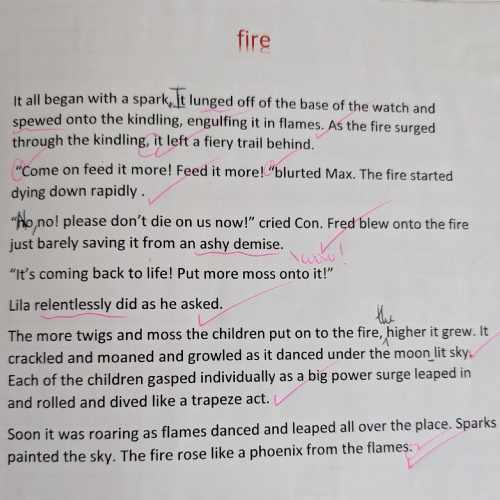 fire
It all began with a spark, It lunged off of the base of the watch and
spewed onto the kindling, engulfing it in flames. As the fire surged
through the kindling, it left a fiery trail behind.
“Come on feed it more! Feed it more! “blurted Max. The fire started
dying down rapidly .
“No, no! please don’t die on us now!” cried Con. Fred blew onto the fire
just barely saving it from an ashy demise.
wow!
“It’s coming back to life! Put more moss onto it!”
Lila relentlessly did as he asked.
the
The more twigs and moss the children put on to the fire, higher it grew. It
crackled and moaned and growled as it danced under the moon lit sky.
Each of the children gasped individually as a big power surge leaped in
and rolled and dived like a trapeze act.
Soon it was roaring as flames danced and leaped all over the place. Sparks
painted the sky. The fire rose like a phoenix from the flames.